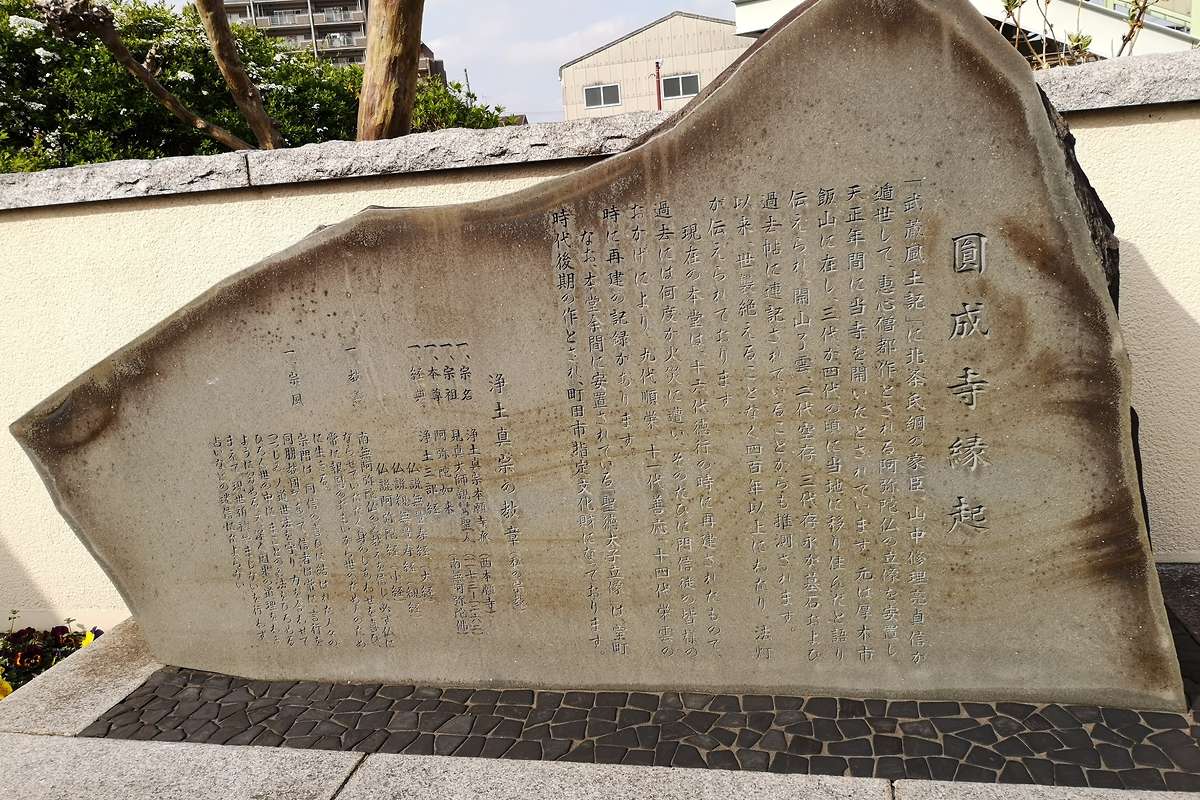 圓成寺縁起
「武蔵風土記」に北条氏綱の家臣、山中修理亮貞信が
遁世して、恵心僧都作とされる阿弥陀仏の立像を安置し、
天正年間に当寺を開いたとされています。元は厚木市
飯山に在し、三代か四代の頃に当地に移り住んだと語り
伝えられ、開山了雲、二代空存、三代存永が墓石および
過去帖に連記されていることからも推測されます。
以来、世襲絶えることなく四百年以上にわたり、法灯
が伝えられております。
現在の本堂は、十六代徳行の時に再建されたもので、
過去には何度か火災に遭い、そのたびに門信徒の皆様の
おかげにより、九代順栄、十一代善応、十四代栄雲の
時に再建の記録があります。
なお、本堂余間に安置されている「聖徳太子立像」は、室町
時代後期の作とされ、町田市指定文化財になっております。
浄土真宗の教章（私の歩む道）
一、宗名 浄土真宗本願寺派（西本願寺）
一、宗祖 見真大師親鸞聖人
一、本尊 阿弥陀如来（南無阿弥陀仏）
一、経典 浄土三部経
仏説無量寿経（大経）
仏説観無量寿経（観経）
仏説阿弥陀経（小経）
一、教義 南無阿弥陀仏
一、宗風 宗門は同信